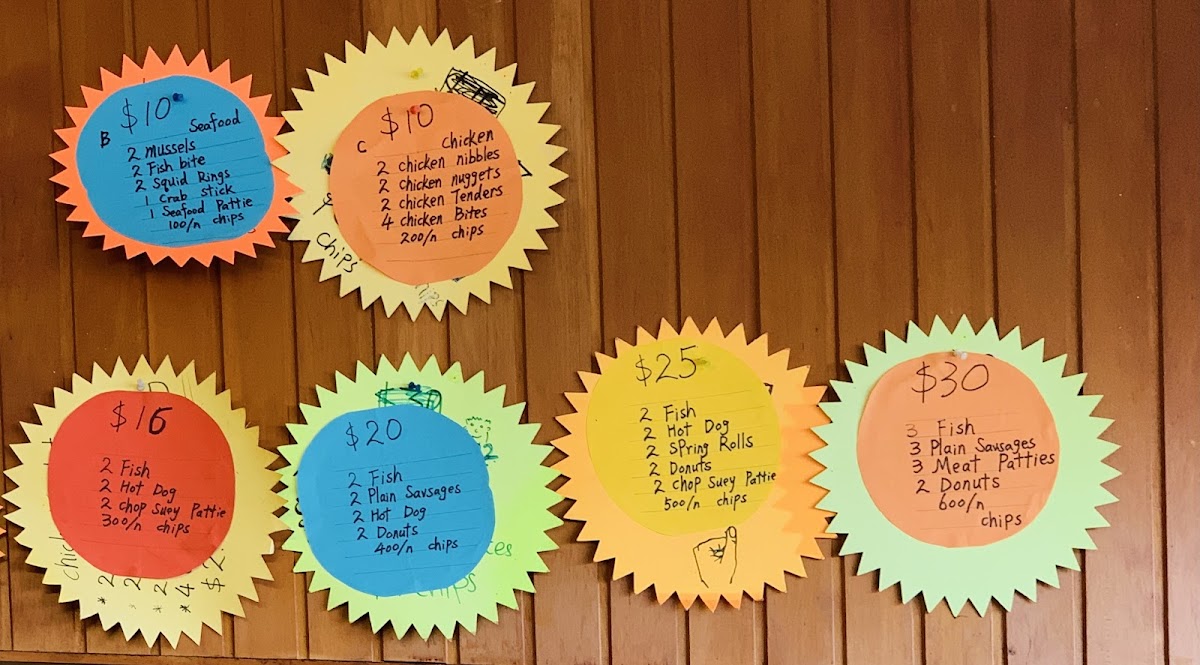 $10
B Seafood
2 mussels
2 Fish bite
2 Squid Rings
1 Crab stick
1 Seafood Pattie
100/n chips
$10
C Chicken
2 chicken nibbles
2 chicken nuggets
2 chicken Tenders
4 chicken Bites
200/n chips
chips
$16
2 Fish
2 Hot Dog
2 chop Suey Pattie
300/n chips
$20
2 Fish
2 Plain Savsages
2 Hot Dog
2 Donuts
400/n chips
chips
$25
2 Fish
2 Hot Dog
2 Spring Rolls
2 Donuts
2 Chop Suey Pattie
500/n chips
$30
3 Fish
3 Plain Sausages
3 Meat Patties
2 Donuts
600/n
chips